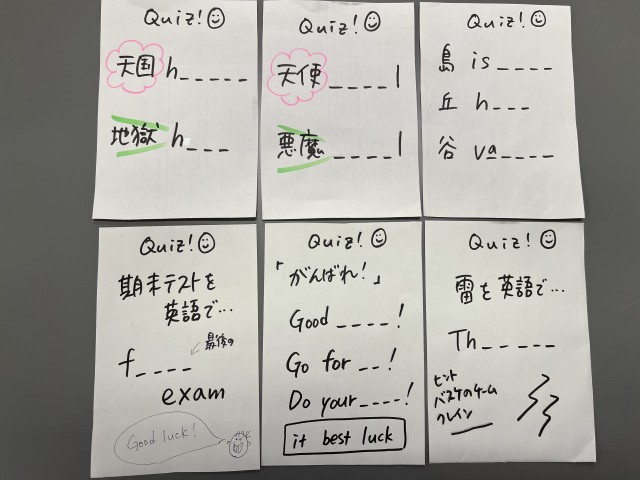 Quiz!
天国 h_ _ _ _ _
地獄 h_ _ _
Quiz!
天使 _ _ _ _ l
悪魔 _ _ _ _ l
Quiz!
島 is _ _ _ _
丘 h_ _ _
谷 va_ _ _ _
Quiz!
期末テストを
英語で...
f_ _ _ _ 最後の
exam
Good luck!
Quiz!
「がんばれ!」
Good _ _ _ _!
Go for _ _!
Do your _ _ _ _!
it best luck
Quiz!
雷を英語で...
Th_ _ _ _ _
ヒント
バスケの